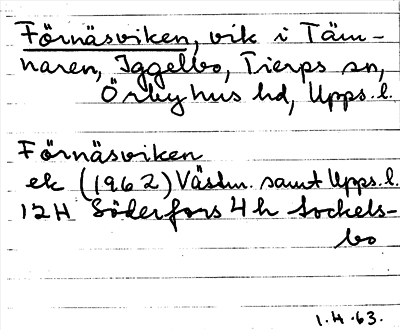 Förnäsviken, vik i Täm-
naren, Iggelbo, Tierps sn,
Örbyhus hd, Upps. l.
Förnäsviken
ek (1962) Västm. samt Upps. l.
12H Söderfors 4h Sockels-
bo
1.4.63.